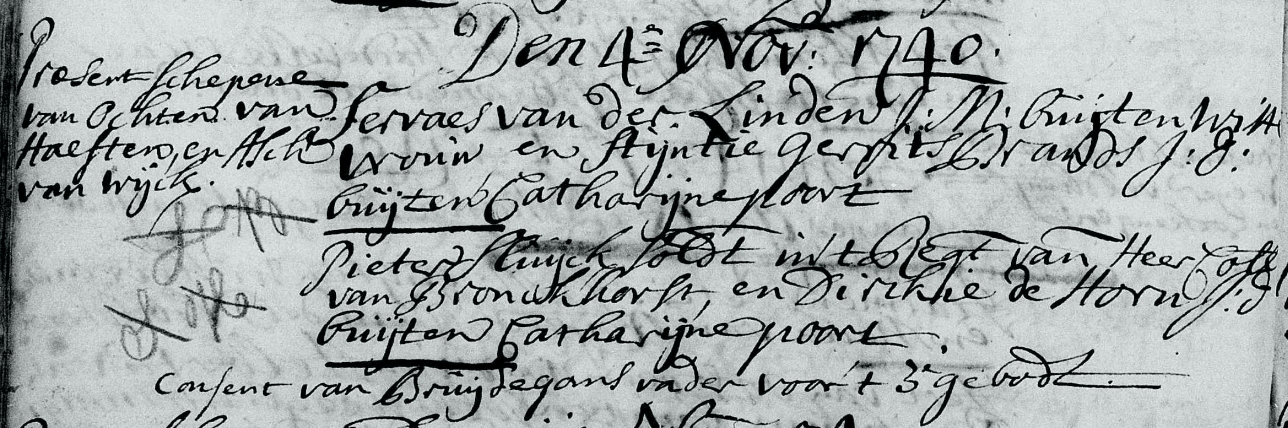 Den 4e Novr: 1740.
Present schepene
van Ochten van
Haeften, en
van Wijck.
Servaes van der Linden J: M: buijten Witte
vrouw en Stijntie Gerrits Brands J: D:
buijten Catharijne poort
Pieter Sluijck Soldt in't Regt van Heer
van Bronckhorst, en Dirckie de Horn J: D
buijten Catharijne poort.
Consent van Bruijdegans vader voor 't 3e gebodt